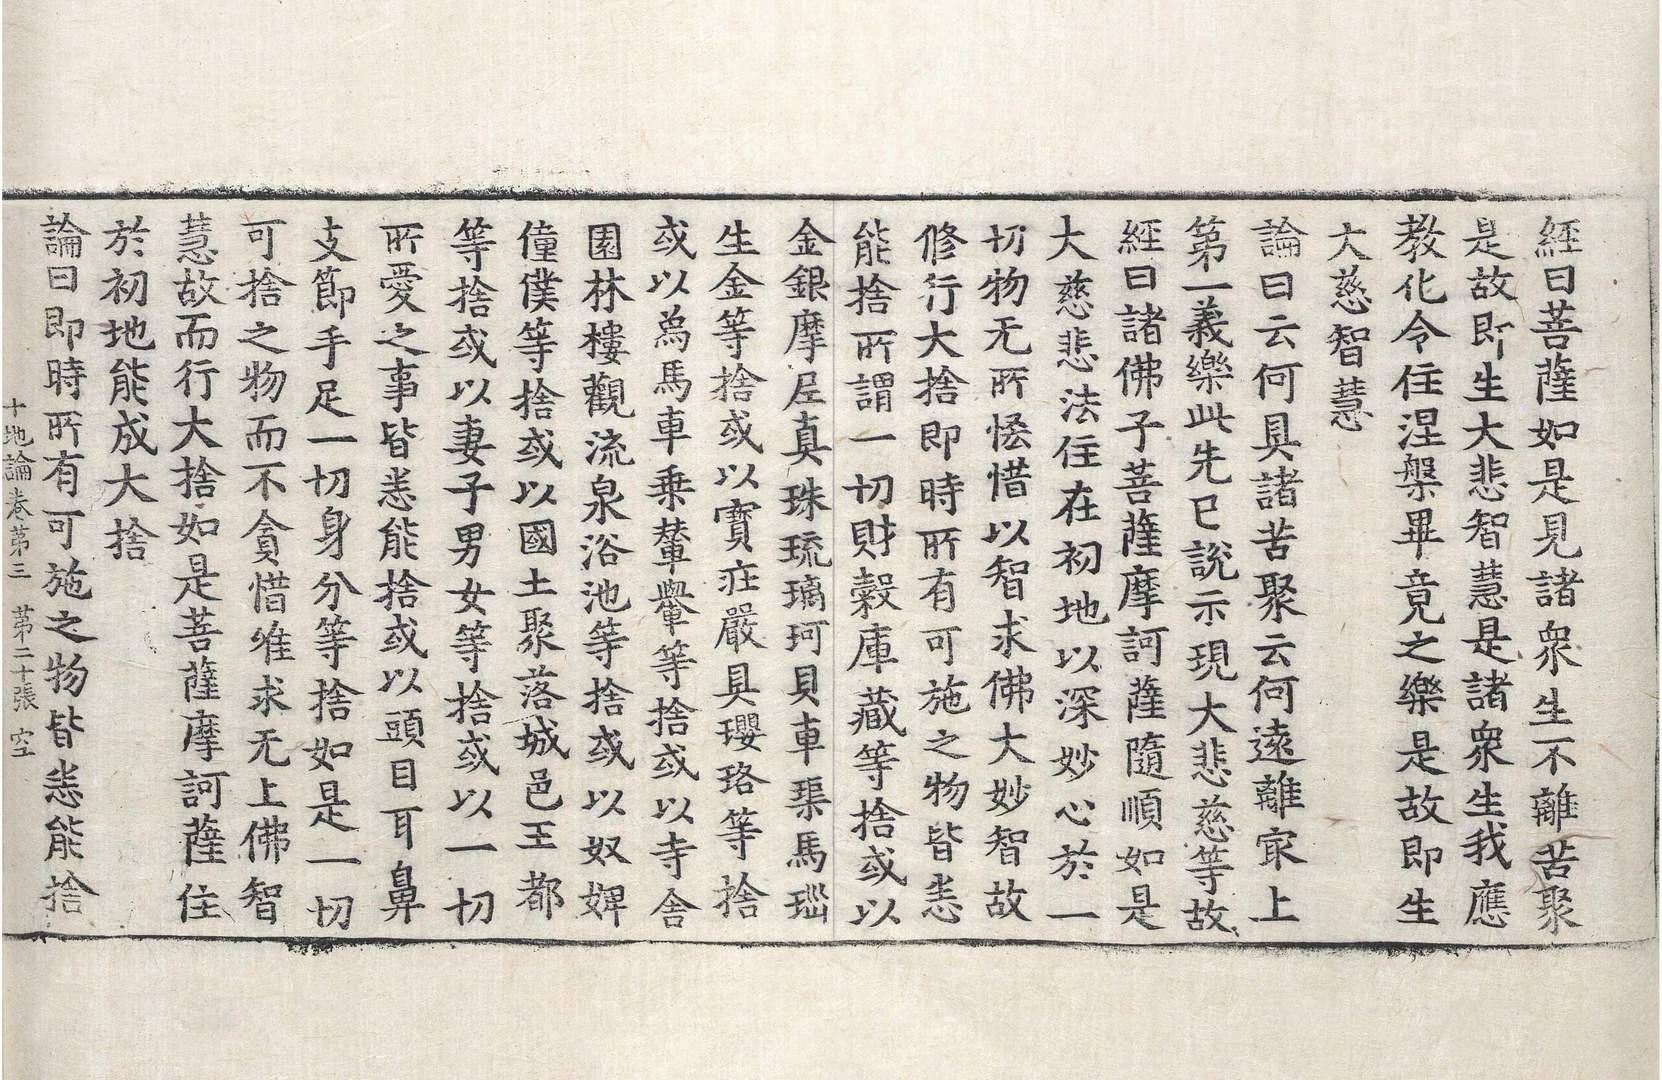 經曰菩薩如是見諸衆生不離苦聚
是故即生大悲智慧是諸衆生我應
教化令住涅槃畢竟之樂是故即生
大慈智慧
論曰云何具諸苦聚云何遠離冣上
第一義樂此先已說示現大悲慈等故
經曰諸佛子菩薩摩訶薩隨順如是
大慈悲法住在初地以深妙心於一
切物无所恡惜以智求佛大妙智故
修行大捨即時所有可施之物皆悉
能捨所謂一切財穀庫藏等捨或以
金銀摩尼真珠琉璃珂貝車渠馬瑙
生金等捨或以寶莊嚴具瓔珞等捨
或以為馬車乗輦轝等捨或以寺舎
園林樓觀流泉浴池等捨或以奴婢
僮僕等捨或以國土聚落城邑王都
等捨或以妻子男女等捨或以一切
所愛之事皆悉能捨或以頭目耳鼻
支節手足一切身分等捨如是一切
可捨之物而不貪惜唯求无上佛智
慧故而行大捨如是菩薩摩訶薩住
於初地能成大捨
論曰即時所有可施之物皆悉能捨
十地論卷苐三 苐二十張 空